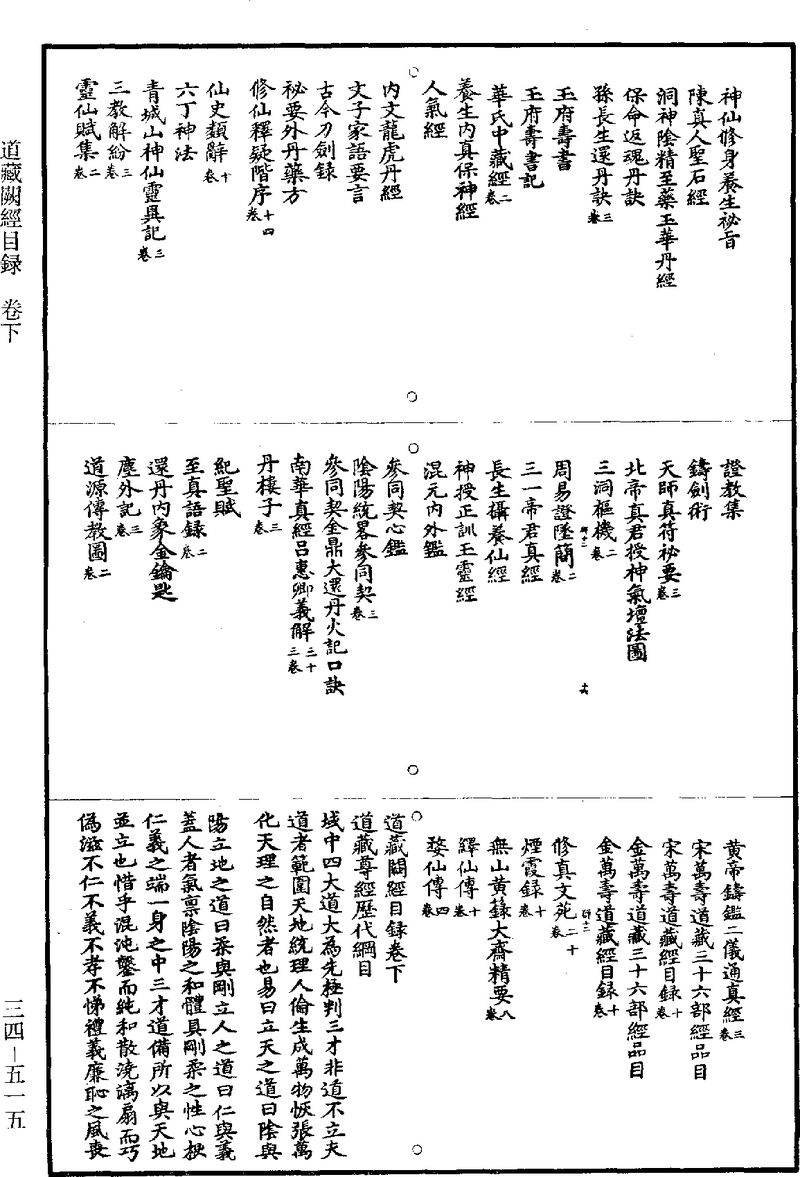 道藏闕經目録　卷下
神仙修身養生祕旨
陳真人聖石經
洞神陰精至藥玉華丹經
保命返魂丹訣
孫長生還丹訣三卷
玉府壽書
玉府壽書記
華氏中藏經二卷
養生内真保神經
人氣經
内文龍虎丹經
文子家語要言
古今刀劍録
祕要外丹藥方
修仙釋疑階序十四卷
仙史類辭十卷
六丁神法
青城山神仙靈異記三卷
三教解紛三卷
靈仙賦集二卷
證教集
鑄劍術
天師真符祕要三卷
北帝真君授神氣壇法圖
三洞樞機二卷
周易證墜簡二卷
三一帝君真經
長生攝養仙經
神授正訓玉靈經
混元内外鑑
參同契心鑑
陰陽統畧參同契三卷
參同契金鼎大還丹火記口訣
南華真經吕惠卿義解三十三卷
丹棲子三卷
紀聖賦
至真語録二卷
還丹内象金鑰匙
塵外記三卷
道源傳教圖二卷
黄帝鑄鑑二儀通真經三卷
宋萬壽道藏三十六部經品目
宋萬壽道藏經目録十卷
金萬壽道藏三十六部經品目
金萬壽道藏經目録十卷
修真文苑二十卷
煙霞録十卷
無山黄籙大齋精要八卷
繹仙傳十卷
婺仙傳四卷
道藏闕經目録卷下
道藏尊經歷代綱目
域中四大道大為先極判三才非道不立夫
道者範圍天地統理人倫生成萬物恢張萬
化天理之自然者也易曰立天之道曰陰與
陽立地之道曰柔與剛立人之道曰仁與義
蓋人者氣禀陰陽之和體具剛柔之性心根
仁義之端一身之中三才道備所以與天地
並立也惜乎混沌鑿而純和散澆漓扇而巧
偽滋不仁不義不孝不悌禮義廉恥之風喪
三四—五一五